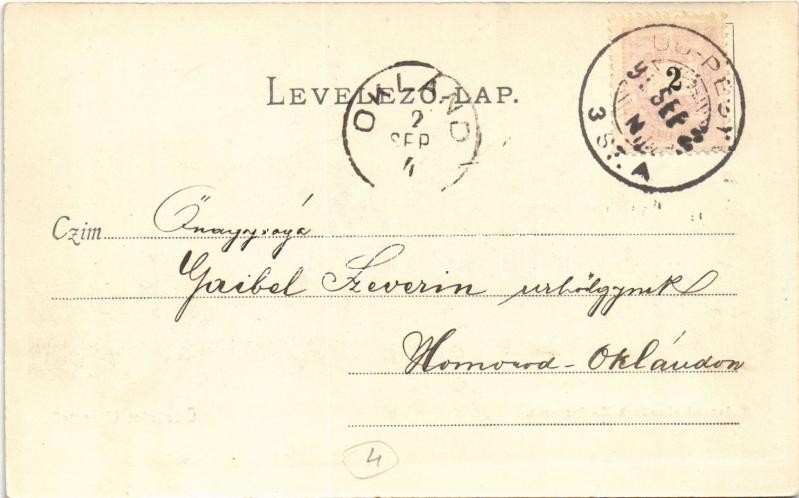 LEVELEZŐ-LAP.
OKLAND
2
SEP
4
BU-PEST
2
SEP
3 SZ. A
Czim
Őnagysága
Gaibel Szeverin urhölgynek
Homorod-Oklándon
4